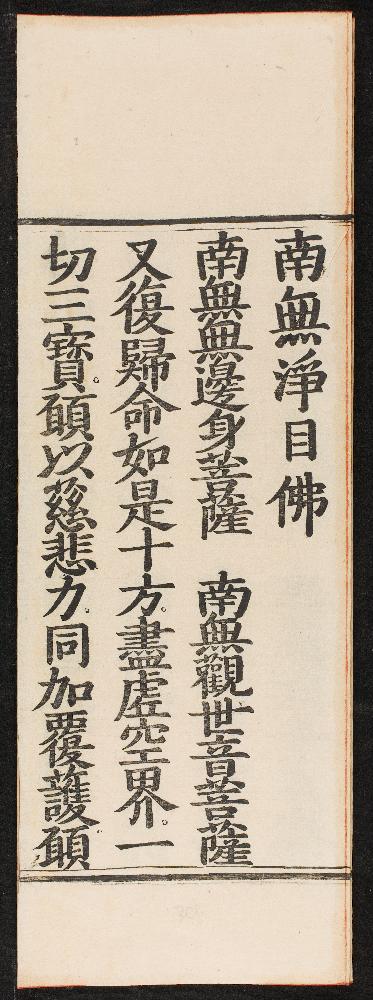 南無淨目佛
南無無邊身菩薩　南無觀世音菩薩
又復歸命如是十方。盡虛空界。一
切三寶。願以慈悲力。同加覆護願